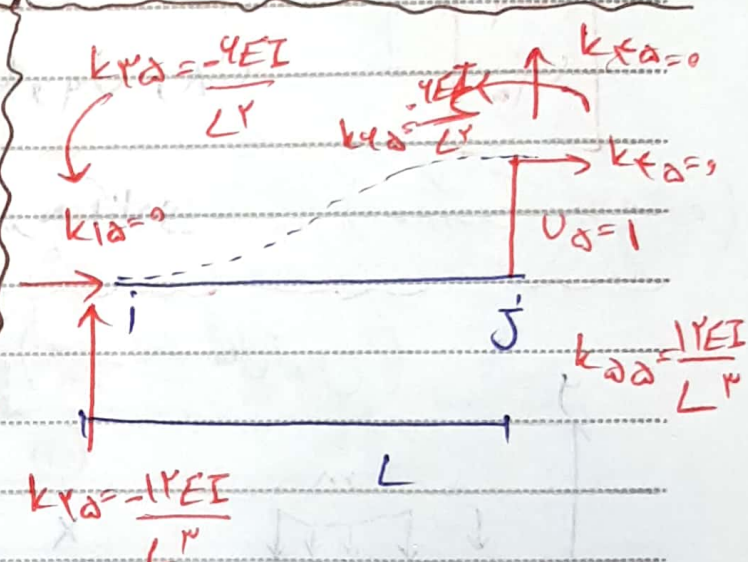 k۳۵ = -۶EI / L۲
k۴۵ = ۰
k۶۵ = -۶EI / L۲
k۴۵ = ۰
k۱۵ = ۰
U۵ = ۱
i
j
k۵۵ = ۱۲EI / L۳
L
k۲۵ = -۱۲EI / L۳